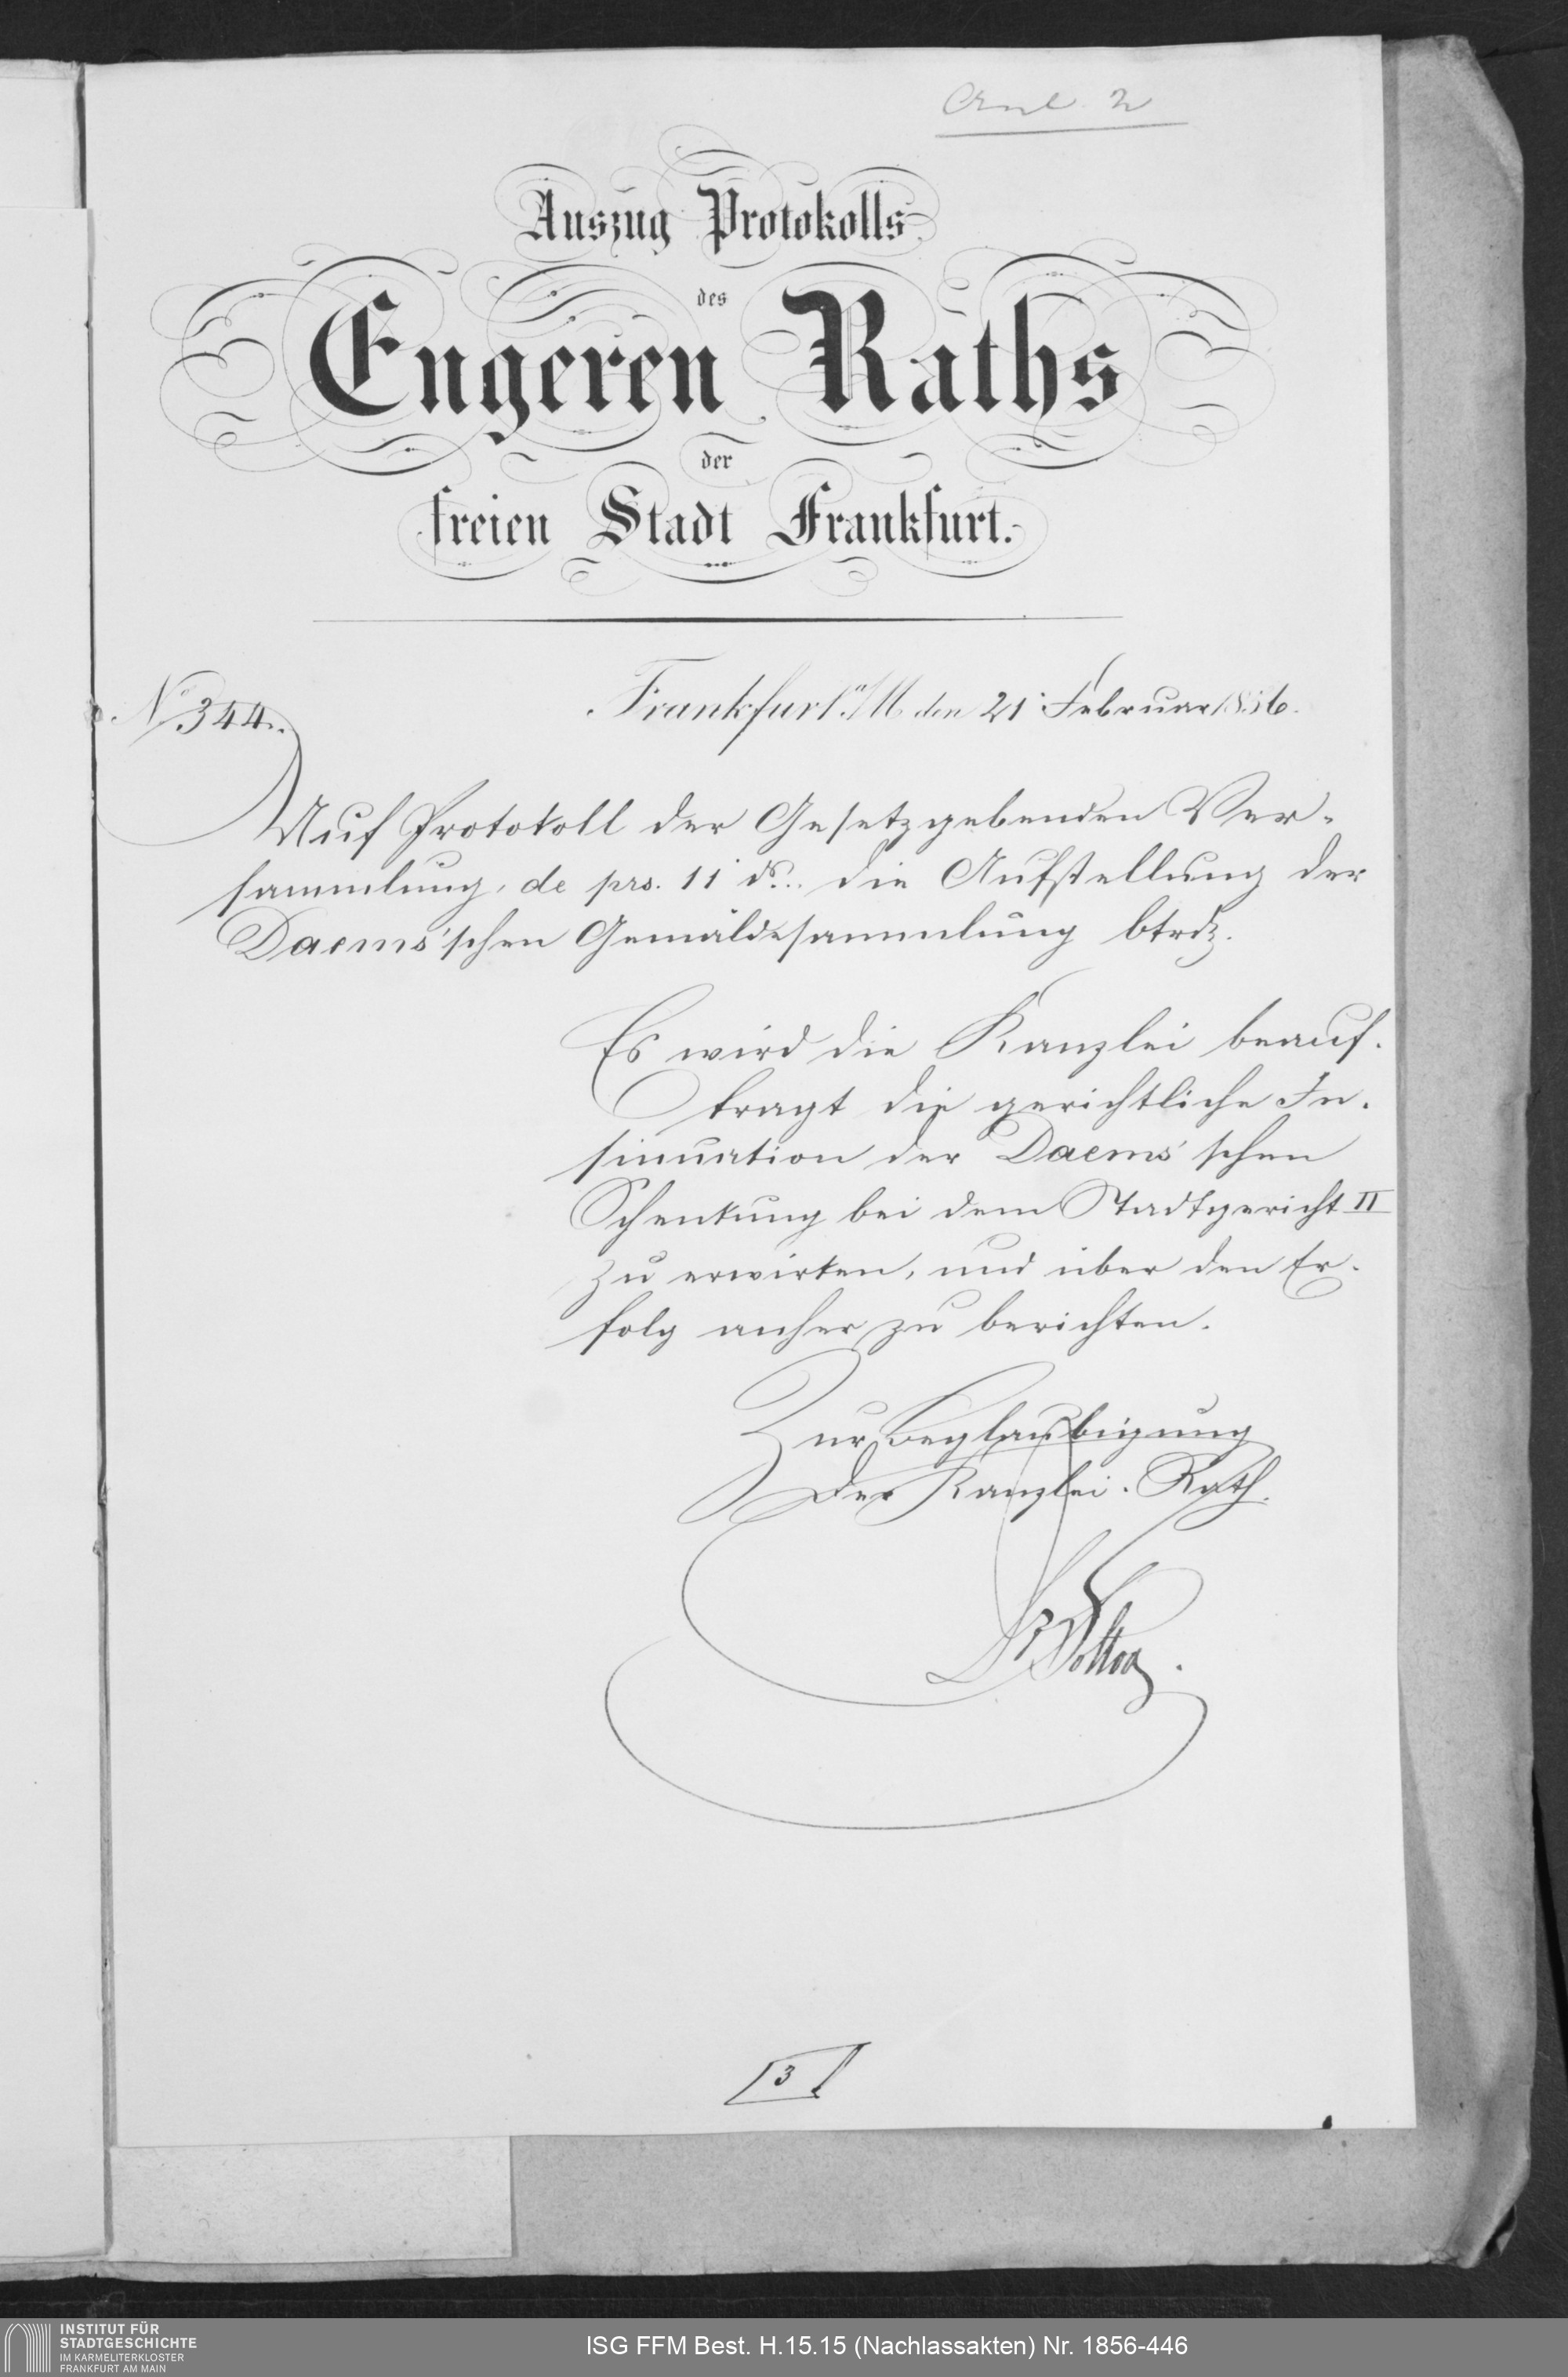 Anl. 2
Auszug Protokolls
des
Engeren Raths
der
freien Stadt Frankfurt.
No. 344.
Frankfurt a/M den 21. Februar 1856.
Auf Protokoll der Gesetzgebenden Ver-
sammlung, de prs. 11 ds. die Aufstellung der
Daems'schen Gemäldesammlung btrdz.
Es wird die Kanzlei beauf-
tragt die gerichtliche In-
sinuation der Daems'schen
Schenkung bei dem Stadtgericht II
zu erwirken, und über den Er-
folg anher zu berichten.
Zur Beglaubigung
Der Kanzlei-Rath.
Dr
3
INSTITUT FÜR
STADTGESCHICHTE
IM KARMELITERKLOSTER
FRANKFURT AM MAIN
ISG FFM Best. H.15.15 (Nachlassakten) Nr. 1856-446